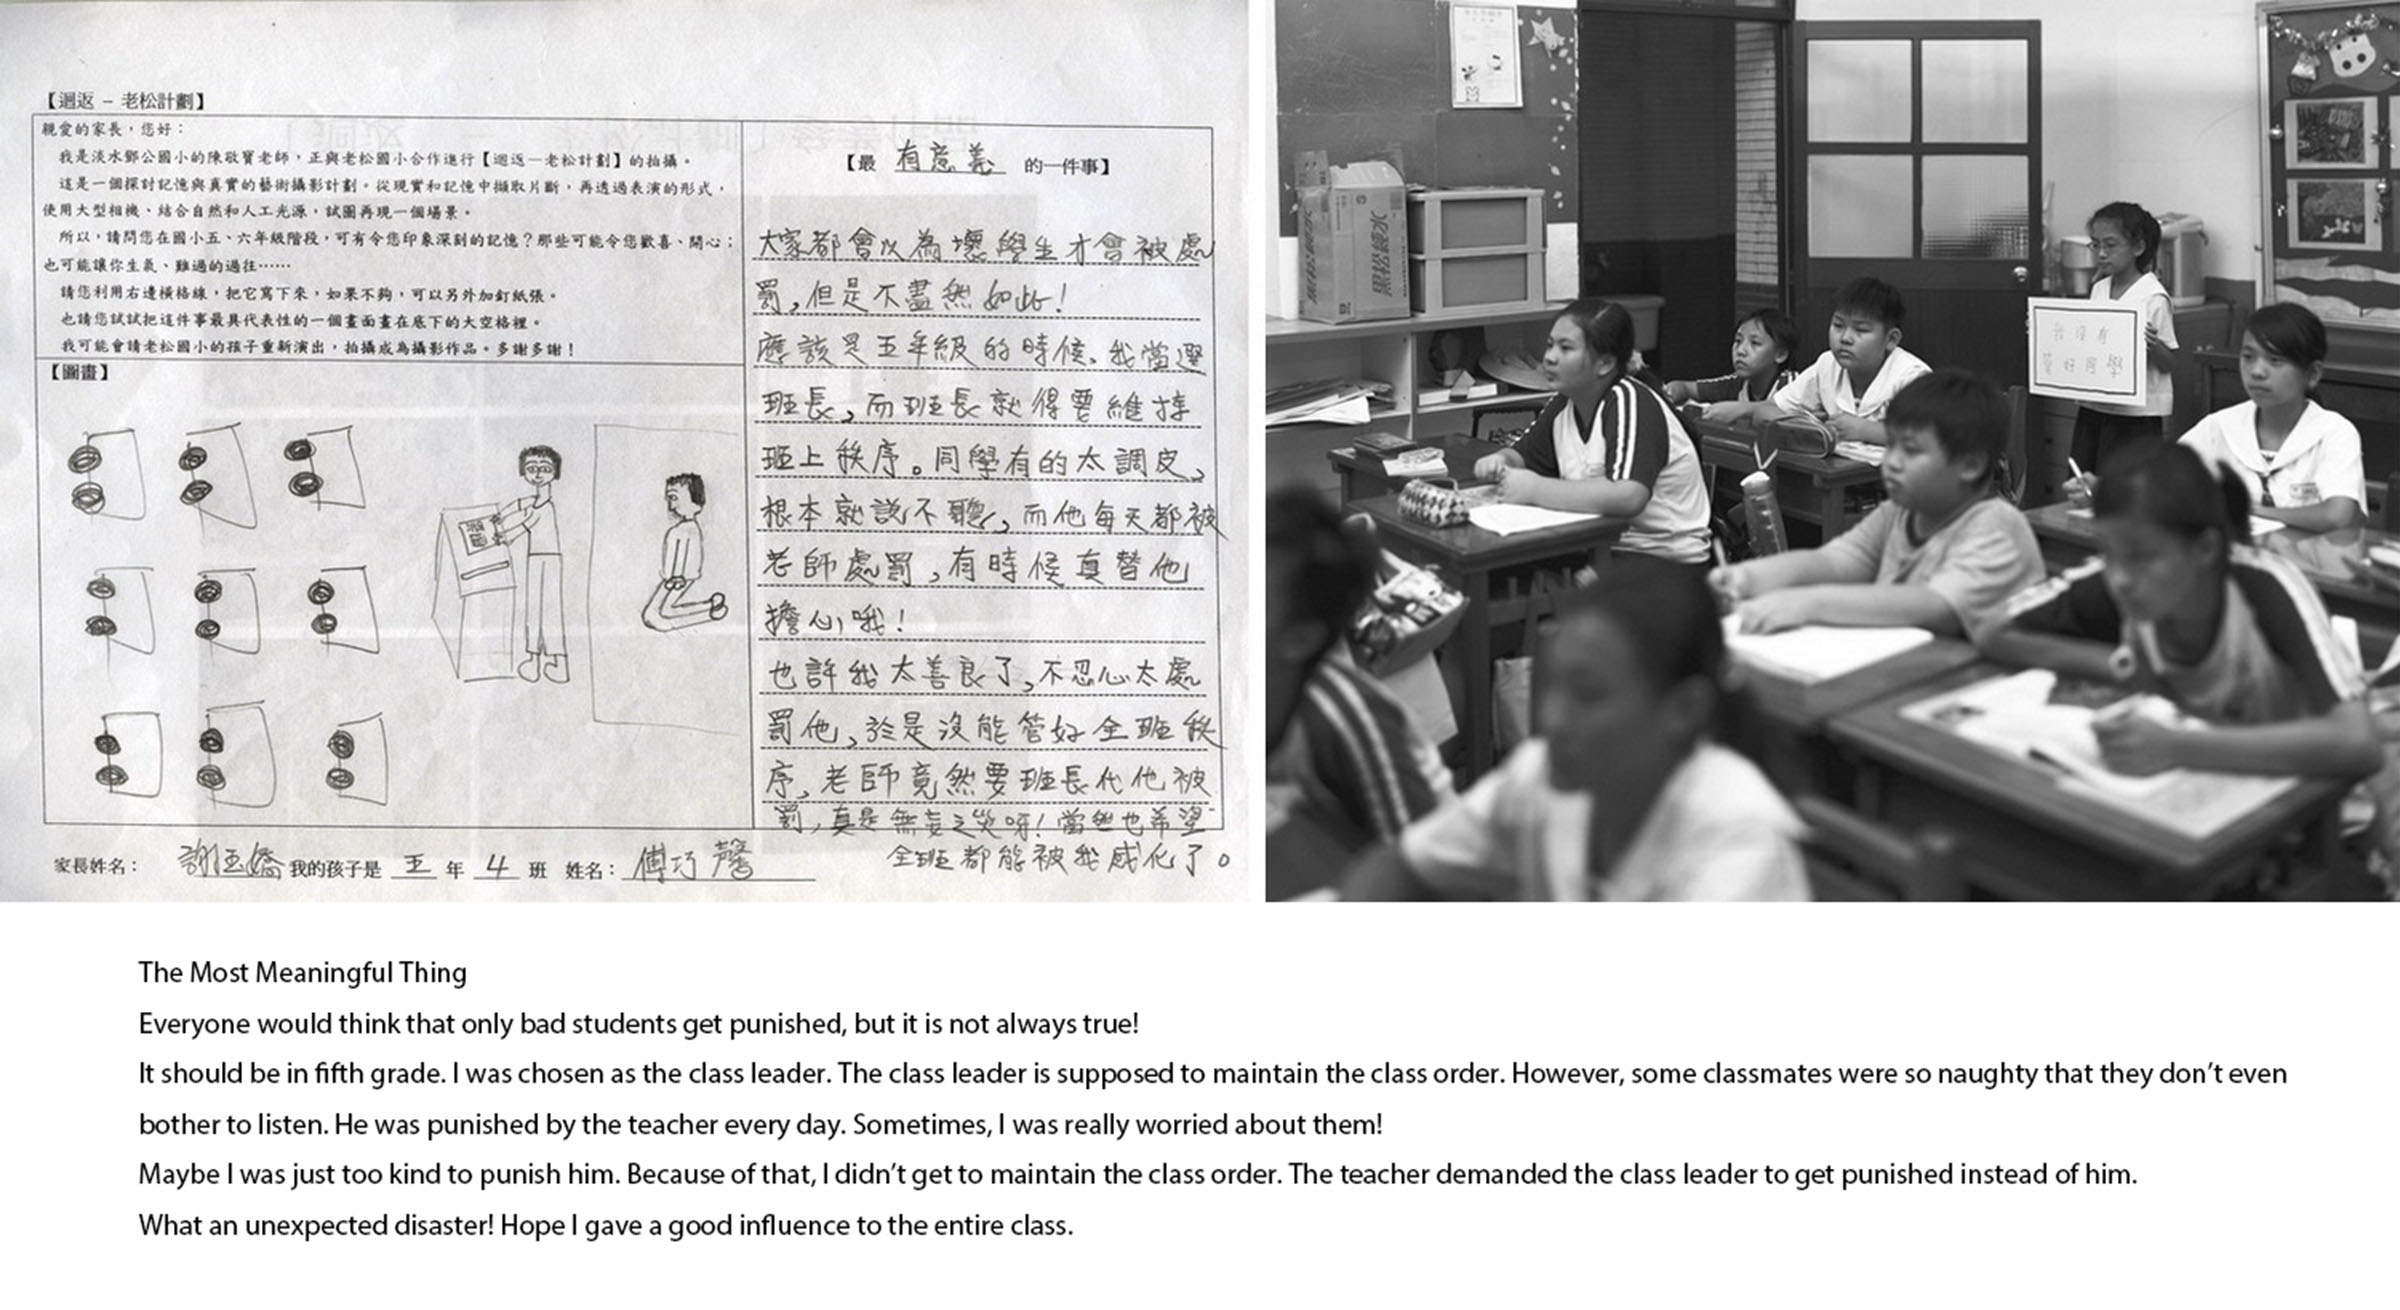 【迴返 – 老松計劃】
親愛的家長，您好：
我是淡水鄧公國小的陳敬寶老師，正與老松國小合作進行【迴返—老松計劃】的拍攝。
這是一個探討記憶與真實的藝術攝影計劃。從現實和記憶中擷取片斷，再透過表演的形式，
使用大型相機、結合自然和人工光源，試圖再現一個場景。
所以，請問您在國小五、六年級階段，可有令您印象深刻的記憶？那些可能令您歡喜、開心；
也可能讓你生氣、難過的過往……
請您利用右邊橫格線，把它寫下來，如果不夠，可以另外加釘紙張。
也請您試試把這件事最具代表性的一個畫面畫在底下的大空格裡。
我可能會請老松國小的孩子重新演出，拍攝成為攝影作品。多謝多謝！
【圖畫】
【最 有意義 的一件事】
大家都會以為壞學生才會被處
罰，但是不盡然如此！
應該是五年級的時候，我當選
班長，而班長就得要維持
班上秩序。同學有的太調皮，
根本就說不聽，而他每天都被
老師處罰，有時候真替他
擔心哦！
也許我太善良了，不忍心太處
罰他，於是沒能管好全班秩
序，老師竟然要班長代他被
罰，真是無妄之災呀！當然也希望
全班都能被我感化了。
家長姓名： 謝玉嬌 我的孩子是 五 年 4 班 姓名： 傅巧馨
我沒有
管好同學
黑松綠水
The Most Meaningful Thing
Everyone would think that only bad students get punished, but it is not always true!
It should be in fifth grade. I was chosen as the class leader. The class leader is supposed to maintain the class order. However, some classmates were so naughty that they don’t even
bother to listen. He was punished by the teacher every day. Sometimes, I was really worried about them!
Maybe I was just too kind to punish him. Because of that, I didn’t get to maintain the class order. The teacher demanded the class leader to get punished instead of him.
What an unexpected disaster! Hope I gave a good influence to the entire class.